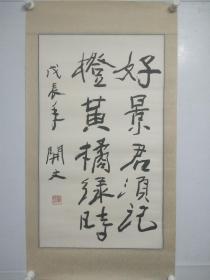 好景君須記
橙黃橘綠時
戊辰年 開文